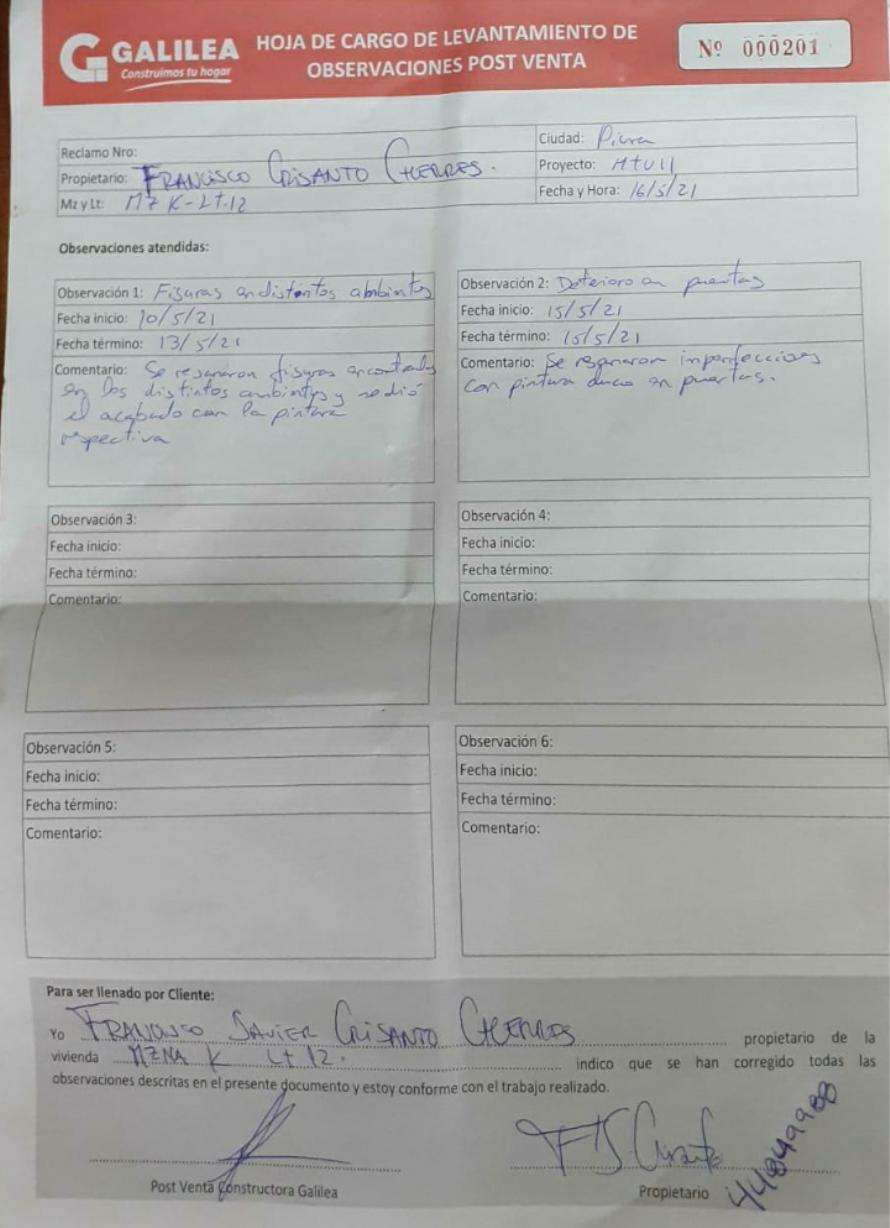 GALILEA
Construimos tu hogar
HOJA DE CARGO DE LEVANTAMIENTO DE
OBSERVACIONES POST VENTA
Nº 000201
Reclamo Nro:
Propietario: FRANCISCO CRISANTO CHERRES.
Mz y Lt: MZ K-Lt.12
Ciudad: Piura
Proyecto: HTU II
Fecha y Hora: 16/5/21
Observaciones atendidas:
Observación 1: Fisuras en distintos
Fecha inicio: 10/5/21
Fecha término: 13/5/21
Comentario: Se resanaron fisuras
en los distintos y se dió
el acabado con la pintura
respectiva
Observación 2: Deterioro en puertas
Fecha inicio: 15/5/21
Fecha término: 15/5/21
Comentario: Se resanaron imperfecciones
con pintura duco en puertas.
Observación 3:
Fecha inicio:
Fecha término:
Comentario:
Observación 4:
Fecha inicio:
Fecha término:
Comentario:
Observación 5:
Fecha inicio:
Fecha término:
Comentario:
Observación 6:
Fecha inicio:
Fecha término:
Comentario:
Para ser llenado por Cliente:
Yo FRANCISCO JAVIER CRISANTO CHERRES propietario de la
vivienda MZNA K Lt 12. indico que se han corregido todas las
observaciones descritas en el presente documento y estoy conforme con el trabajo realizado.
Post Venta Constructora Galilea
Propietario
44849988